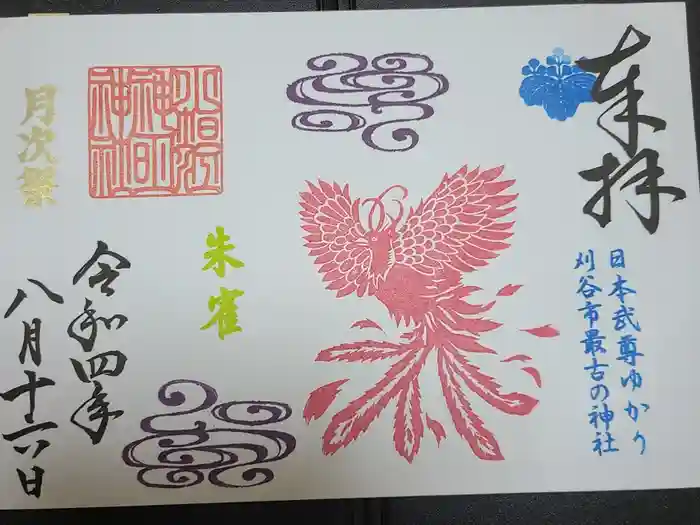 奉拝
日本武尊ゆかり
刈谷市最古の神社
朱雀
令和四年
八月十六日
月次祭